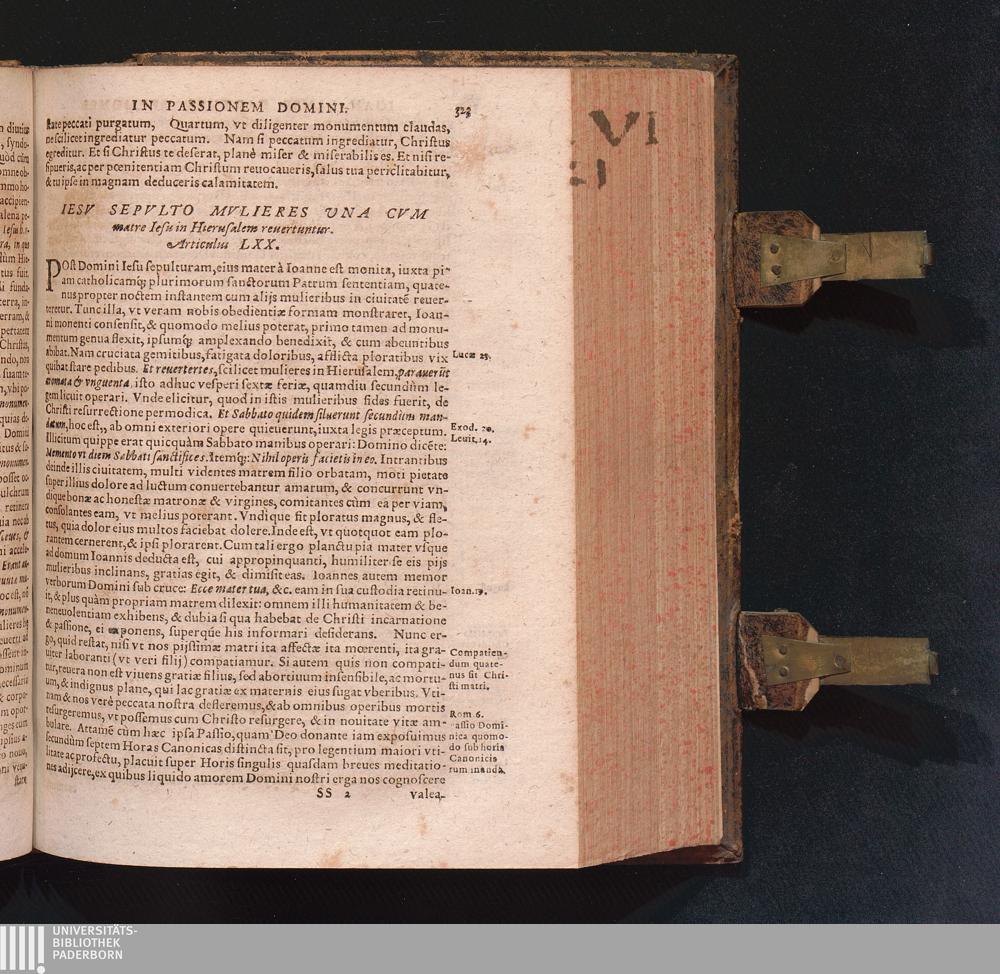 IN PASSIONEM DOMINI. 323
state peccati purgatum, Quartum, vt diligenter monumentum claudas,
ne scilicet ingrediatur peccatum. Nam si peccatum ingrediatur, Christus
egreditur. Et si Christus te deserat, planè miser & miserabilis es. Et nisi re-
sipueris, ac per pœnitentiam Christum reuocaueris, salus tua periclitabitur,
& tu ipse in magnam deduceris calamitatem.
IESV SEPVLTO MVLIERES VNA CVM
matre Iesu in Hierusalem reuertuntur.
Articulus LXX.
POst Domini Iesu sepulturam, eius mater à Ioanne est monita, iuxta pi-
am catholicamq; plurimorum sanctorum Patrum sententiam, quate-
nus propter noctem instantem cum alijs mulieribus in ciuitatē reuer-
teretur. Tunc illa, vt veram nobis obedientiæ formam monstraret, Ioan-
ni monenti consensit, & quomodo melius poterat, primo tamen ad monu-
mentum genua flexit, ipsumq; amplexando benedixit, & cum abeuntibus
abibat. Nam cruciata gemitibus, fatigata doloribus, afflicta ploratibus vix
quibat stare pedibus. Et reuertētes, scilicet mulieres in Hierusalem, parauerūt
aromata & vnguenta, isto adhuc vesperi sextæ feriæ, quamdiu secundùm le-
gem licuit operari. Vnde elicitur, quod in istis mulieribus fides fuerit, de
Christi resurrectione permodica. Et Sabbato quidem siluerunt secundum man-
datum, hoc est, ab omni exteriori opere quieuerunt, iuxta legis præceptum.
Illicitum quippe erat quicquàm Sabbato manibus operari: Domino dicēte:
Memento vt diem Sabbati sanctifices. Itemq́;: Nihil operis facietis in eo. Intrantibus
deinde illis ciuitatem, multi videntes matrem filio orbatam, moti pietate
super illius dolore ad luctum conuertebantur amarum, & concurrunt vn-
dique bonæ ac honestæ matronæ & virgines, comitantes cùm ea per viam,
consolantes eam, vt melius poterant. Vndique fit ploratus magnus, & fle-
tus, quia dolor eius multos faciebat dolere. Inde est, vt quotquot eam plo-
rantem cernerent, & ipsi plorarent. Cum tali ergo planctu pia mater vsque
ad domum Ioannis deducta est, cui appropinquanti, humiliter se eis pijs
mulieribus inclinans, gratias egit, & dimisit eas. Ioannes autem memor
verborum Domini sub cruce: Ecce mater tua, &c. eam in sua custodia retinu-
it, & plus quàm propriam matrem dilexit: omnem illi humanitatem & be-
neuolentiam exhibens, & dubia si qua habebat de Christi incarnatione
& passione, ei exponens, superq́ue his informari desiderans. Nunc er-
go, quid restat, nisi vt nos pijssimæ matri ita affectæ ita mœrenti, ita gra-
uiter laboranti (vt veri filij) compatiamur. Si autem quis non compati-
tur, reuera non est viuens gratiæ filius, sed abortiuum insensibile, ac mortu-
um, & indignus plane, qui lac gratiæ ex maternis eius sugat vberibus. Vti-
nam & nos verè peccata nostra defleremus, & ab omnibus operibus mortis
resurgeremus, vt possemus cum Christo resurgere, & in nouitate vitæ am-
bulare. Attamē cùm hæc ipsa Passio, quam Deo donante iam exposuimus
secundùm septem Horas Canonicas distincta sit, pro legentium maiori vti-
litate ac profectu, placuit super Horis singulis quasdam breues meditatio-
nes adijcere, ex quibus liquido amorem Domini nostri erga nos cognoscere
SS 2 valea-
Lucæ 23.
Exod. 20.
Leuit. 14.
Ioan. 19.
Compatien-
dum quate-
nus sit Chri-
sti matri.
Rom. 6.
Passio Domi-
nica quomo-
do sub horis
Canonicis
VI
UNIVERSITÄTS-
BIBLIOTHEK
PADERBORN